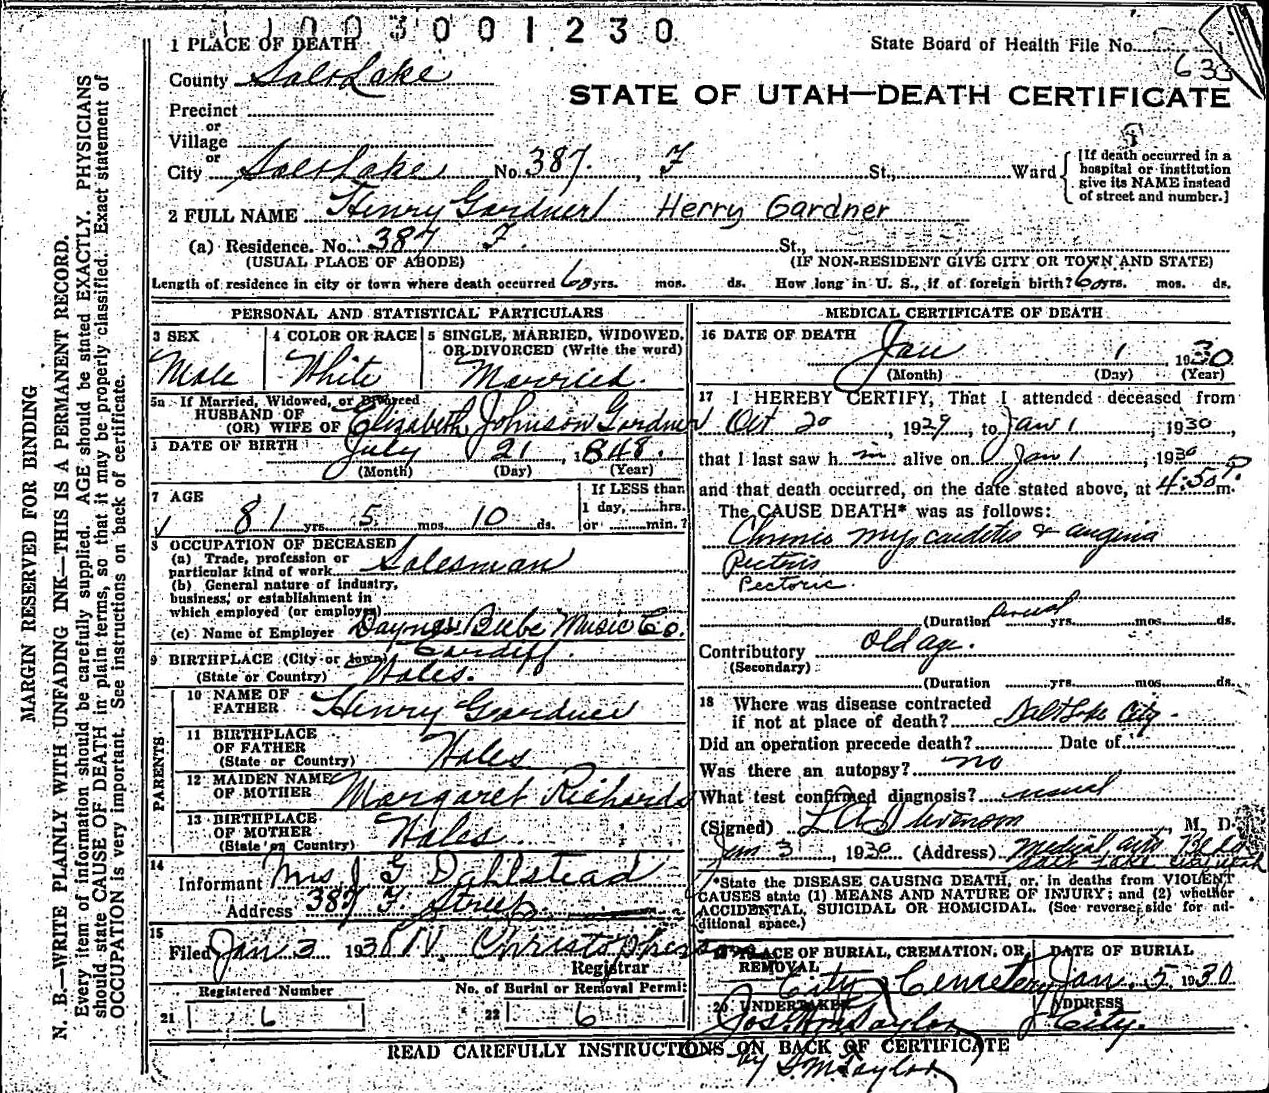 1 1 0 0 3 0 0 1 2 3 0
1 PLACE OF DEATH
State Board of Health File No.
633
County Salt Lake
STATE OF UTAH—DEATH CERTIFICATE
Precinct
or
Village
or
City Salt Lake No. 387. F St., Ward
[If death occurred in a hospital or institution give its NAME instead of street and number.]
2 FULL NAME Henry Gardner Herry Gardner
(a) Residence. No. 387 F. St.,
(USUAL PLACE OF ABODE) (IF NON-RESIDENT GIVE CITY OR TOWN AND STATE)
Length of residence in city or town where death occurred 60 yrs. mos. ds. How long in U. S., if of foreign birth? 60 yrs. mos. ds.
PERSONAL AND STATISTICAL PARTICULARS
3 SEX
Male
4 COLOR OR RACE
White
5 SINGLE, MARRIED, WIDOWED, OR DIVORCED (Write the word)
Married.
5a If Married, Widowed, or Divorced
HUSBAND OF
(OR) WIFE OF Elizabeth Johnson Gardner
DATE OF BIRTH July 21, 1848.
(Month) (Day) (Year)
7 AGE
81 yrs. 5 mos. 10 ds.
If LESS than
1 day, hrs.
or min.?
8 OCCUPATION OF DECEASED
(a) Trade, profession or
particular kind of work Salesman
(b) General nature of industry,
business, or establishment in
which employed (or employer)
(c) Name of Employer Daynes Beebe Music Co.
9 BIRTHPLACE (City or town) Cardiff.
(State or Country) Wales.
PARENTS
10 NAME OF
FATHER Henry Gardner
11 BIRTHPLACE
OF FATHER
(State or Country) Wales
12 MAIDEN NAME
OF MOTHER Margaret Richards
13 BIRTHPLACE
OF MOTHER
(State or Country) Wales
14
Informant Mrs J G Dahlstead
Address 387 F Street
15
Filed Jan 3 1930 W. Christopherson
Registrar
Registered Number
21 6
No. of Burial or Removal Permit
22 6
MEDICAL CERTIFICATE OF DEATH
16 DATE OF DEATH
Jan 1 1930
(Month) (Day) (Year)
17 I HEREBY CERTIFY, That I attended deceased from
Oct 20, 1929, to Jan 1, 1930,
that I last saw h im alive on Jan 1, 1930
and that death occurred, on the date stated above, at 4:50 P. m.
The CAUSE DEATH* was as follows:
Chronic myocarditis & angina
Pectoris
Pectoric
(Duration yrs. mos. ds.
Contributory old age.
(Secondary)
(Duration yrs. mos. ds.
18 Where was disease contracted
if not at place of death? Salt Lake City.
Did an operation precede death? Date of
Was there an autopsy? no
What test confirmed diagnosis? usual
(Signed) L A Stevenson M. D.
Jan 3, 1930 (Address) Medical Arts Bldg
*State the DISEASE CAUSING DEATH, or, in deaths from VIOLENT
CAUSES state (1) MEANS AND NATURE OF INJURY; and (2) whether
ACCIDENTAL, SUICIDAL OR HOMICIDAL. (See reverse side for ad-
ditional space.)
19 PLACE OF BURIAL, CREMATION, OR REMOVAL
City Cemetery
DATE OF BURIAL
Jan. 5 1930
20 UNDERTAKER
Jos. Wm Taylor
by S. M. Taylor
ADDRESS
City.
READ CAREFULLY INSTRUCTIONS ON BACK OF CERTIFICATE
MARGIN RESERVED FOR BINDING
N. B.—WRITE PLAINLY WITH UNFADING INK—THIS IS A PERMANENT RECORD.
Every item of information should be carefully supplied. AGE should be stated EXACTLY. PHYSICIANS
should state CAUSE OF DEATH in plain terms, so that it may be properly classified. Exact statement of
OCCUPATION is very important. See instructions on back of certificate.